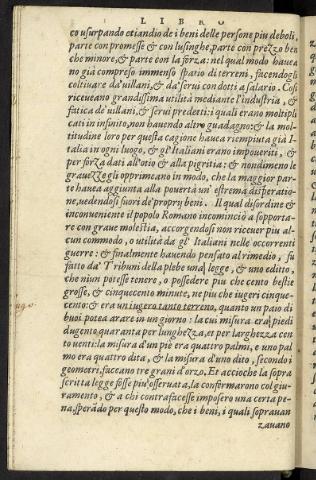 LIBRO
co usurpando etiandio de i beni delle persone piu deboli,
parte con promesse & con lusinghe, parte con prezzo ben
che minore, & parte con la forza: nel qual modo hauea
no già compreso immenso spatio di terreni, facendogli
coltiuare da' uillani, & da' serui condotti a salario. Cosi
riceueano grandissima utilità mediante l'industria, &
fatica de' uillani, & serui predetti: i quali erano moltipli
cati in infinito, non hauendo altro guadagno: & la mol-
titudine loro per questa cagione hauea riempiuta già I-
talia in ogni luogo, & gl' Italiani erano impoueriti, &
per forza dati all'otio & alla pigritia: & nondimeno le
grauezze gli opprimeano in modo, che la maggior par
te hauea aggiunta alla pouertà un' estrema disperatio-
ne, uedendosi fuori de' proprij beni. Il qual disordine &
inconueniente il popolo Romano incominciò a sopporta-
re con graue molestia, accorgendosi non riceuer piu al-
cun commodo, o utilità da gl' Italiani nelle occorrenti
guerre: & finalmente hauendo pensato al rimedio, fù
fatto da' Tribuni della plebe una legge, & uno editto,
che niun potesse tenere, o possedere piu che cento bestie
grosse, & cinquecento minute, ne piu che iugeri cinque-
cento: & era un iugero tanto terreno, quanto un paio di
buoi potea arare in un giorno: la cui misura era piedi
dugento quaranta per lunghezza, et per larghezza cen
to uenti: la misura d'un piè era quattro palmi, e uno pal
mo era quattro dita, & la misura d'uno dito, secondo i
geometri, faceano tre grani d'orzo. Et accioche la sopra
scritta legge fosse piu osseruata, la confermarono col giu-
ramento, & a chi contrafacesse imposero una certa pe-
na, sperãdo per questo modo, che i beni, i quali soprauan
zauano